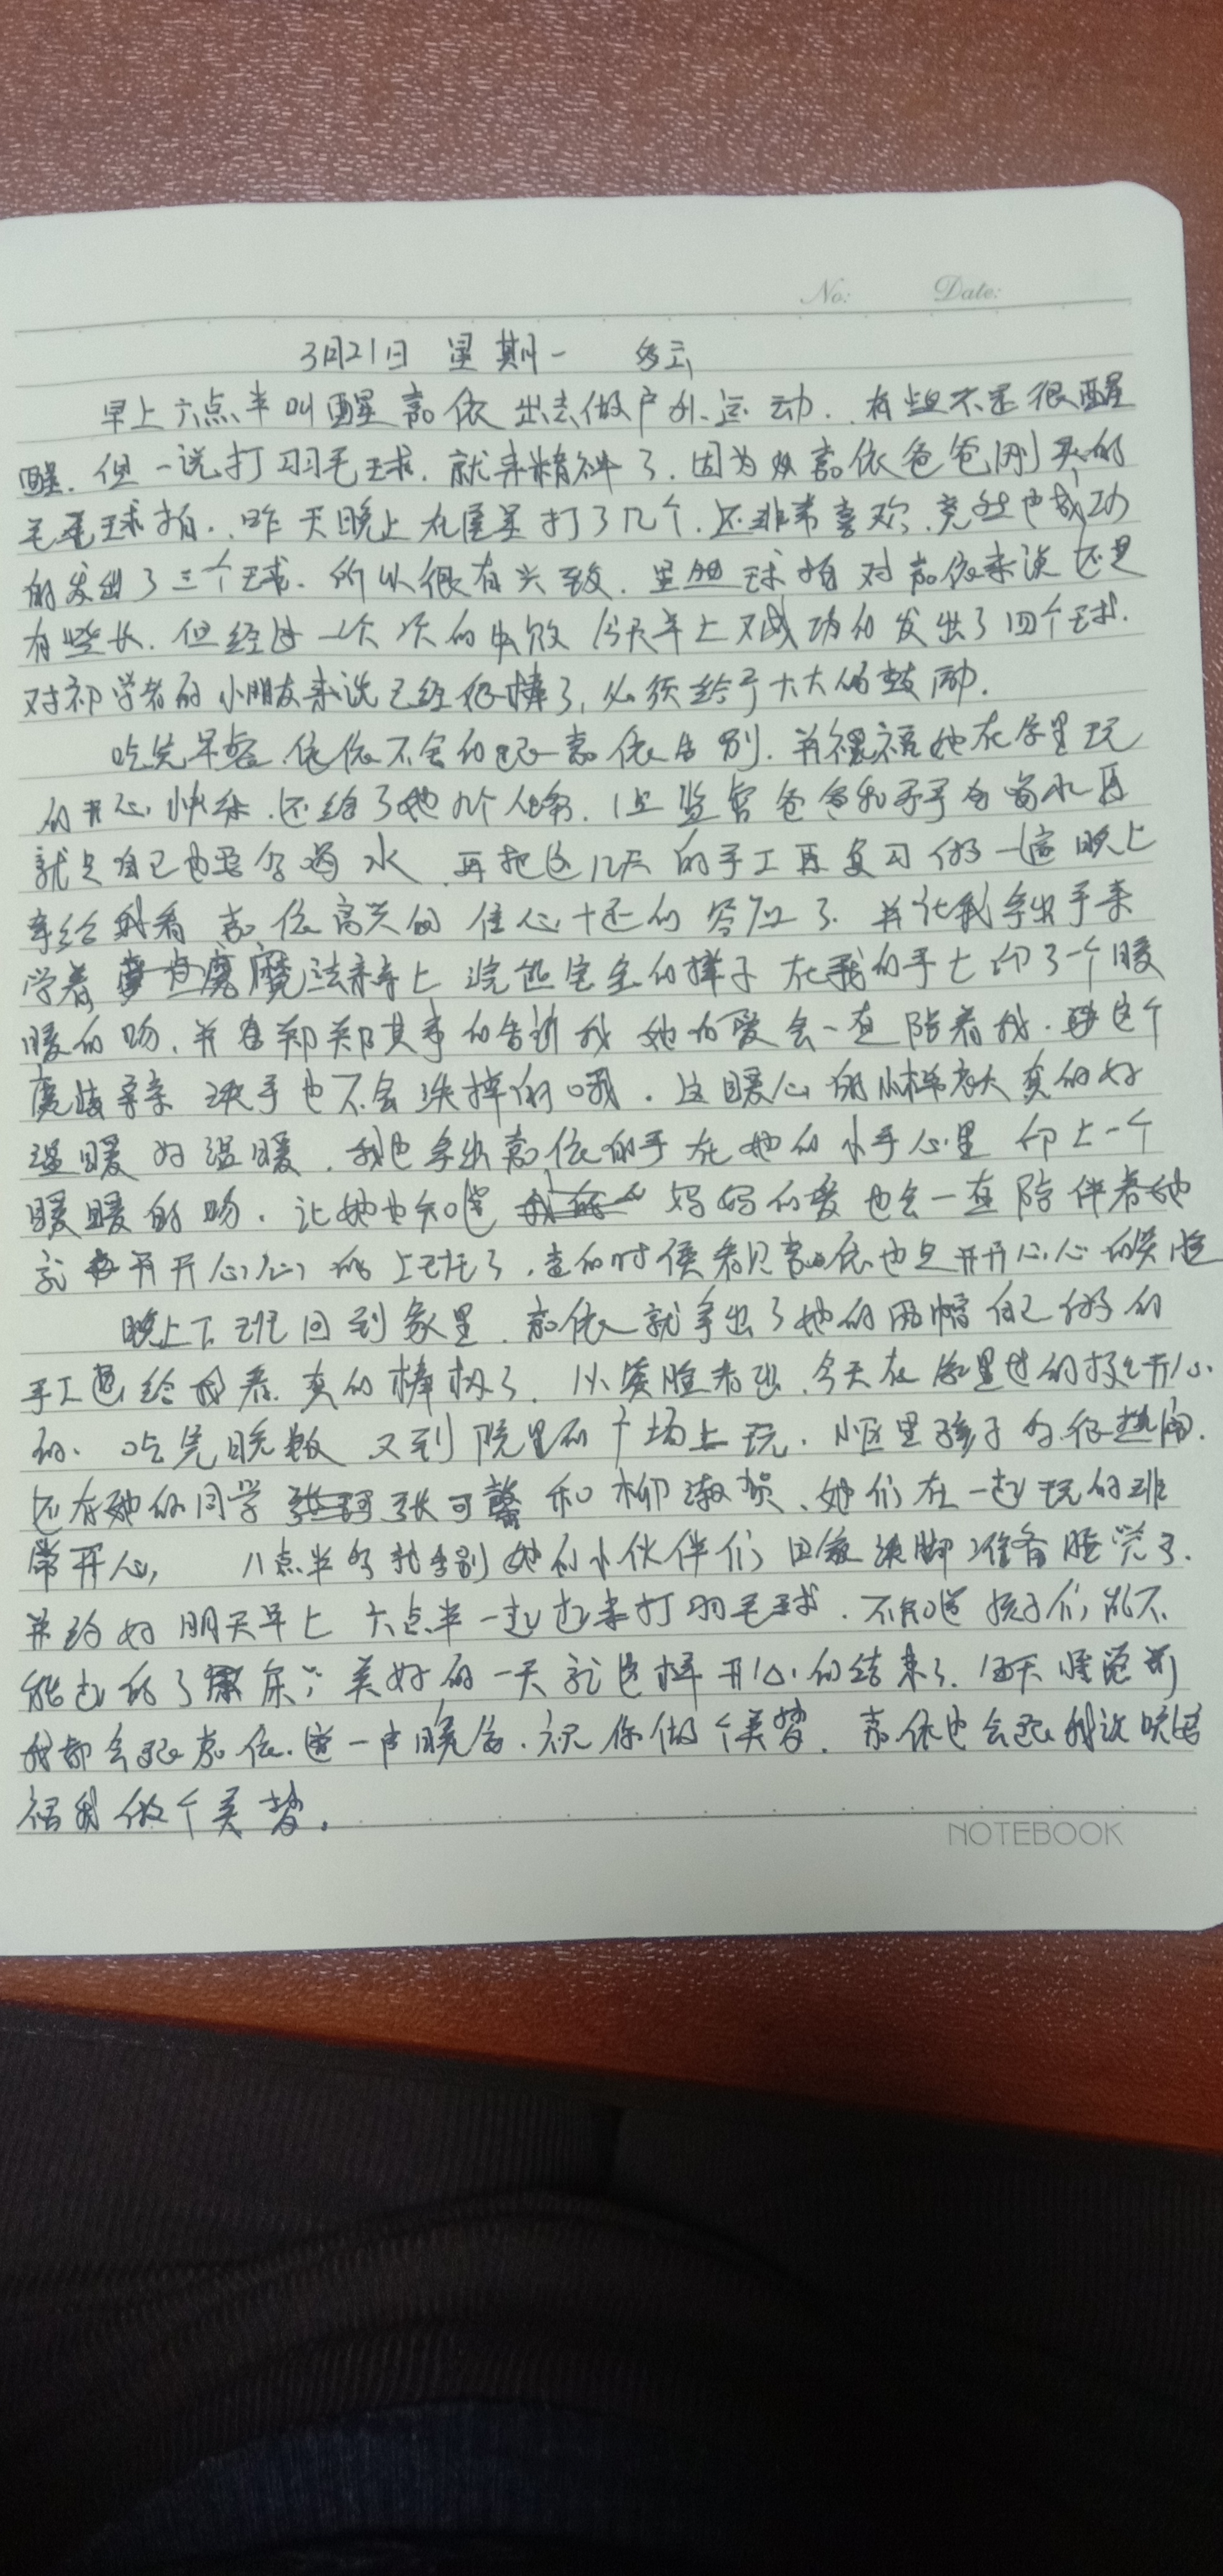 No: Date:
3月21日 星期一 多云
早上六点半叫醒嘉依出去做户外运动.有些不是很醒
醒.但一说打羽毛球.就来精神了.因为嘉依爸爸刚买的
毛球拍.昨天晚上在屋里打了几个.还非常喜欢.竟然也成功
的发出了三个球.所以很有兴致.虽然球拍对嘉依来说还是
有些长.但经过一次次的失败今天早上又成功的发出了四个球.
对初学者的小朋友来说已经好棒了,必须给予大大的鼓励.
吃完早餐.依依不舍的跟嘉依告别.并祝福她在家里玩
的开心快乐.还给了她几个任务.1是监督爸爸和 多喝水再
就是自己也要多喝水.再把这几天的手工再复习做一遍晚上
拿给我看嘉依高兴的信心十足的答应了.并让我拿出手来
学着魔法亲亲上浣熊宝宝的样子在我的手上印了一个暖
暖的吻.并且郑郑其事的告诉我她的爱会一直陪着我.这个
魔法亲亲洗手也不会洗掉的哦.这暖心的小棉袄真的好
温暖好温暖.我也拿出嘉依的手在她的小手心里印上一个
暖暖的吻.让她也知道妈妈的爱也会一直陪伴着她
就开开心心的上班了.走的时候看见嘉依也是开开心心的笑脸
晚上下班回到家里.嘉依就拿出了她的两幅自己做的
手工送给我看.真的棒极了.从笑脸看出.今天在家里过的挺开心
的.吃完晚饭又到院里的广场上玩.小区里孩子多很热闹.
还有她的同学张可馨和柳淑贺.她们在一起玩的非
常开心,八点半多就告别她的小伙伴们回家洗脚准备睡觉了.
并约好明天早上六点半一起起来打羽毛球.不知道孩子们能不
能起的了床.美好的一天就这样开心的结束了.每天睡觉前
我都会跟嘉依.道一声晚安.祝你做个美梦.嘉依也会跟我说晚安
祝我做个美梦.
NOTEBOOK